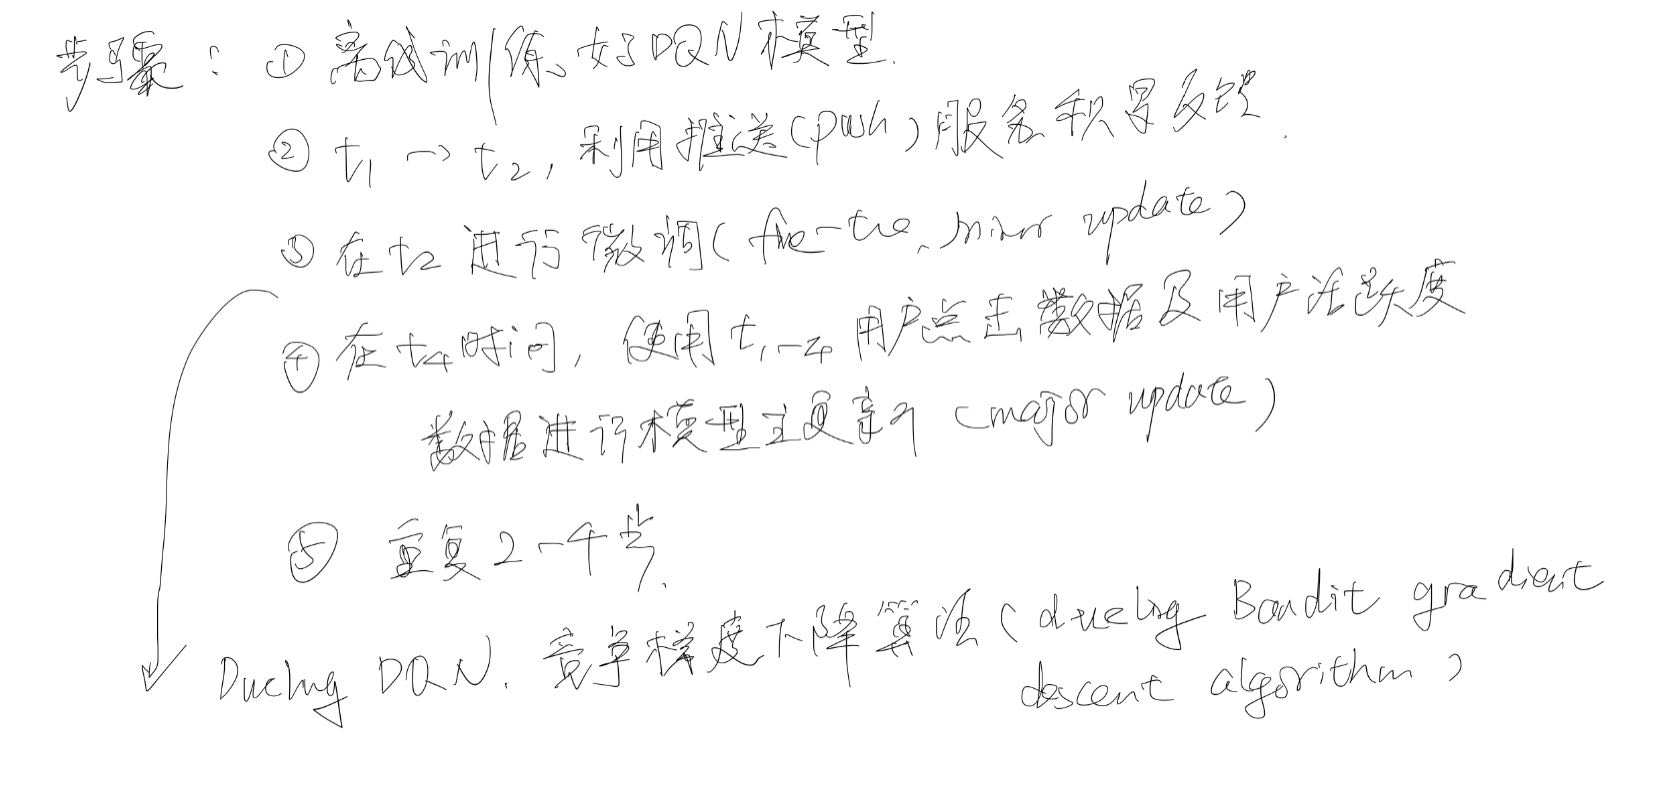 步骤：① 离线训练好DQN模型.
② t1 → t2, 利用推送(push)服务积累反馈.
③ 在t2 进行微调(fine-tune, minor update)
④ 在t4时间, 使用t1-4 用户点击数据及用户活跃度
数据进行模型主更新 (major update)
⑤ 重复2-4步.
Dueling DQN. 竞争梯度下降算法(dueling Bandit gradient
descent algorithm)